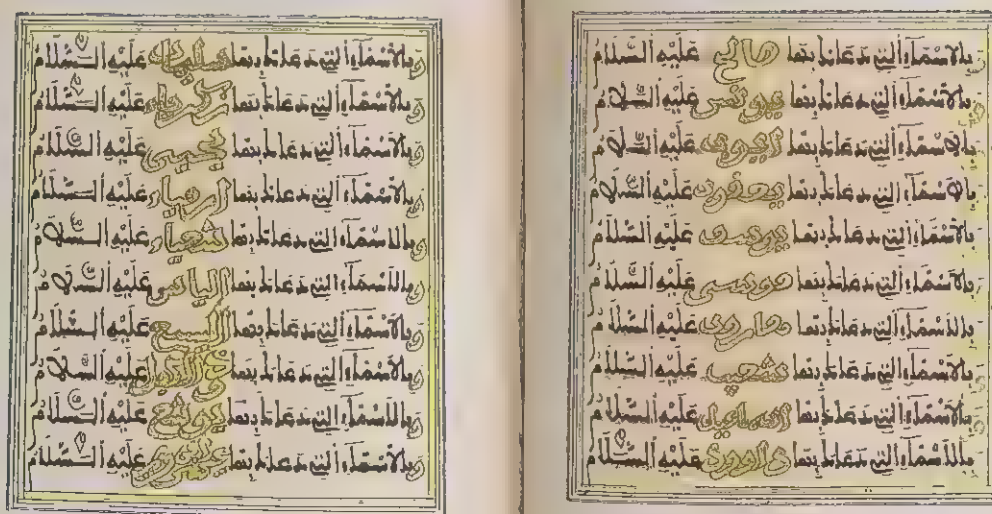 وبالأسماء التي دعاك بها صالح عليه السلام
وبالأسماء التي دعاك بها يونس عليه السلام
وبالأسماء التي دعاك بها أيوب عليه السلام
وبالأسماء التي دعاك بها يعقوب عليه السلام
وبالأسماء التي دعاك بها يوسف عليه السلام
وبالأسماء التي دعاك بها موسى عليه السلام
وبالأسماء التي دعاك بها هارون عليه السلام
وبالأسماء التي دعاك بها شعيب عليه السلام
وبالأسماء التي دعاك بها إسماعيل عليه السلام
وبالأسماء التي دعاك بها داوود عليه السلام
وبالأسماء التي دعاك بها سليمان عليه السلام
وبالأسماء التي دعاك بها زكرياء عليه السلام
وبالأسماء التي دعاك بها يحيى عليه السلام
وبالأسماء التي دعاك بها ارمياء عليه السلام
وبالأسماء التي دعاك بها شعياء عليه السلام
وبالأسماء التي دعاك بها الياس عليه السلام
وبالأسماء التي دعاك بها اليسع عليه السلام
وبالأسماء التي دعاك بها ذو الكفل عليه السلام
وبالأسماء التي دعاك بها يوشع عليه السلام
وبالأسماء التي دعاك بها عليه السلام